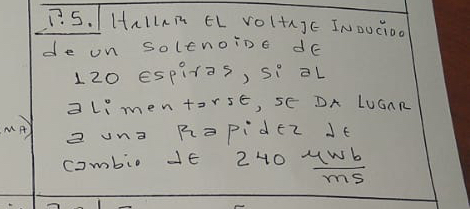 P.5. HALLAR EL VOLTAJE INDUCIDO
de un SOLENOIDE dE
120 ESPIRAS, SI AL
alimentarse, SE DA LUGAR
MA) a una RAPIDEZ dE
cambio dE 240 μWb/ms